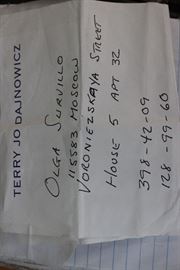 TERRY JO DAJNOWICZ
OLGA SURVILLO
115583 MOSCOW
VORONIEZSKAYA STREET
HOUSE 5 APT 32
398-42-09
128-99-60